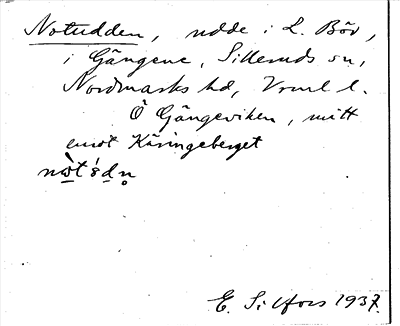 Notudden, udde i L. Bör,
i Gängene, Silleruds sn,
Nordmarks hd, Vrml l.
Ö Gängeviken, mitt
emot Käringeberget
E. Silfors 1937.